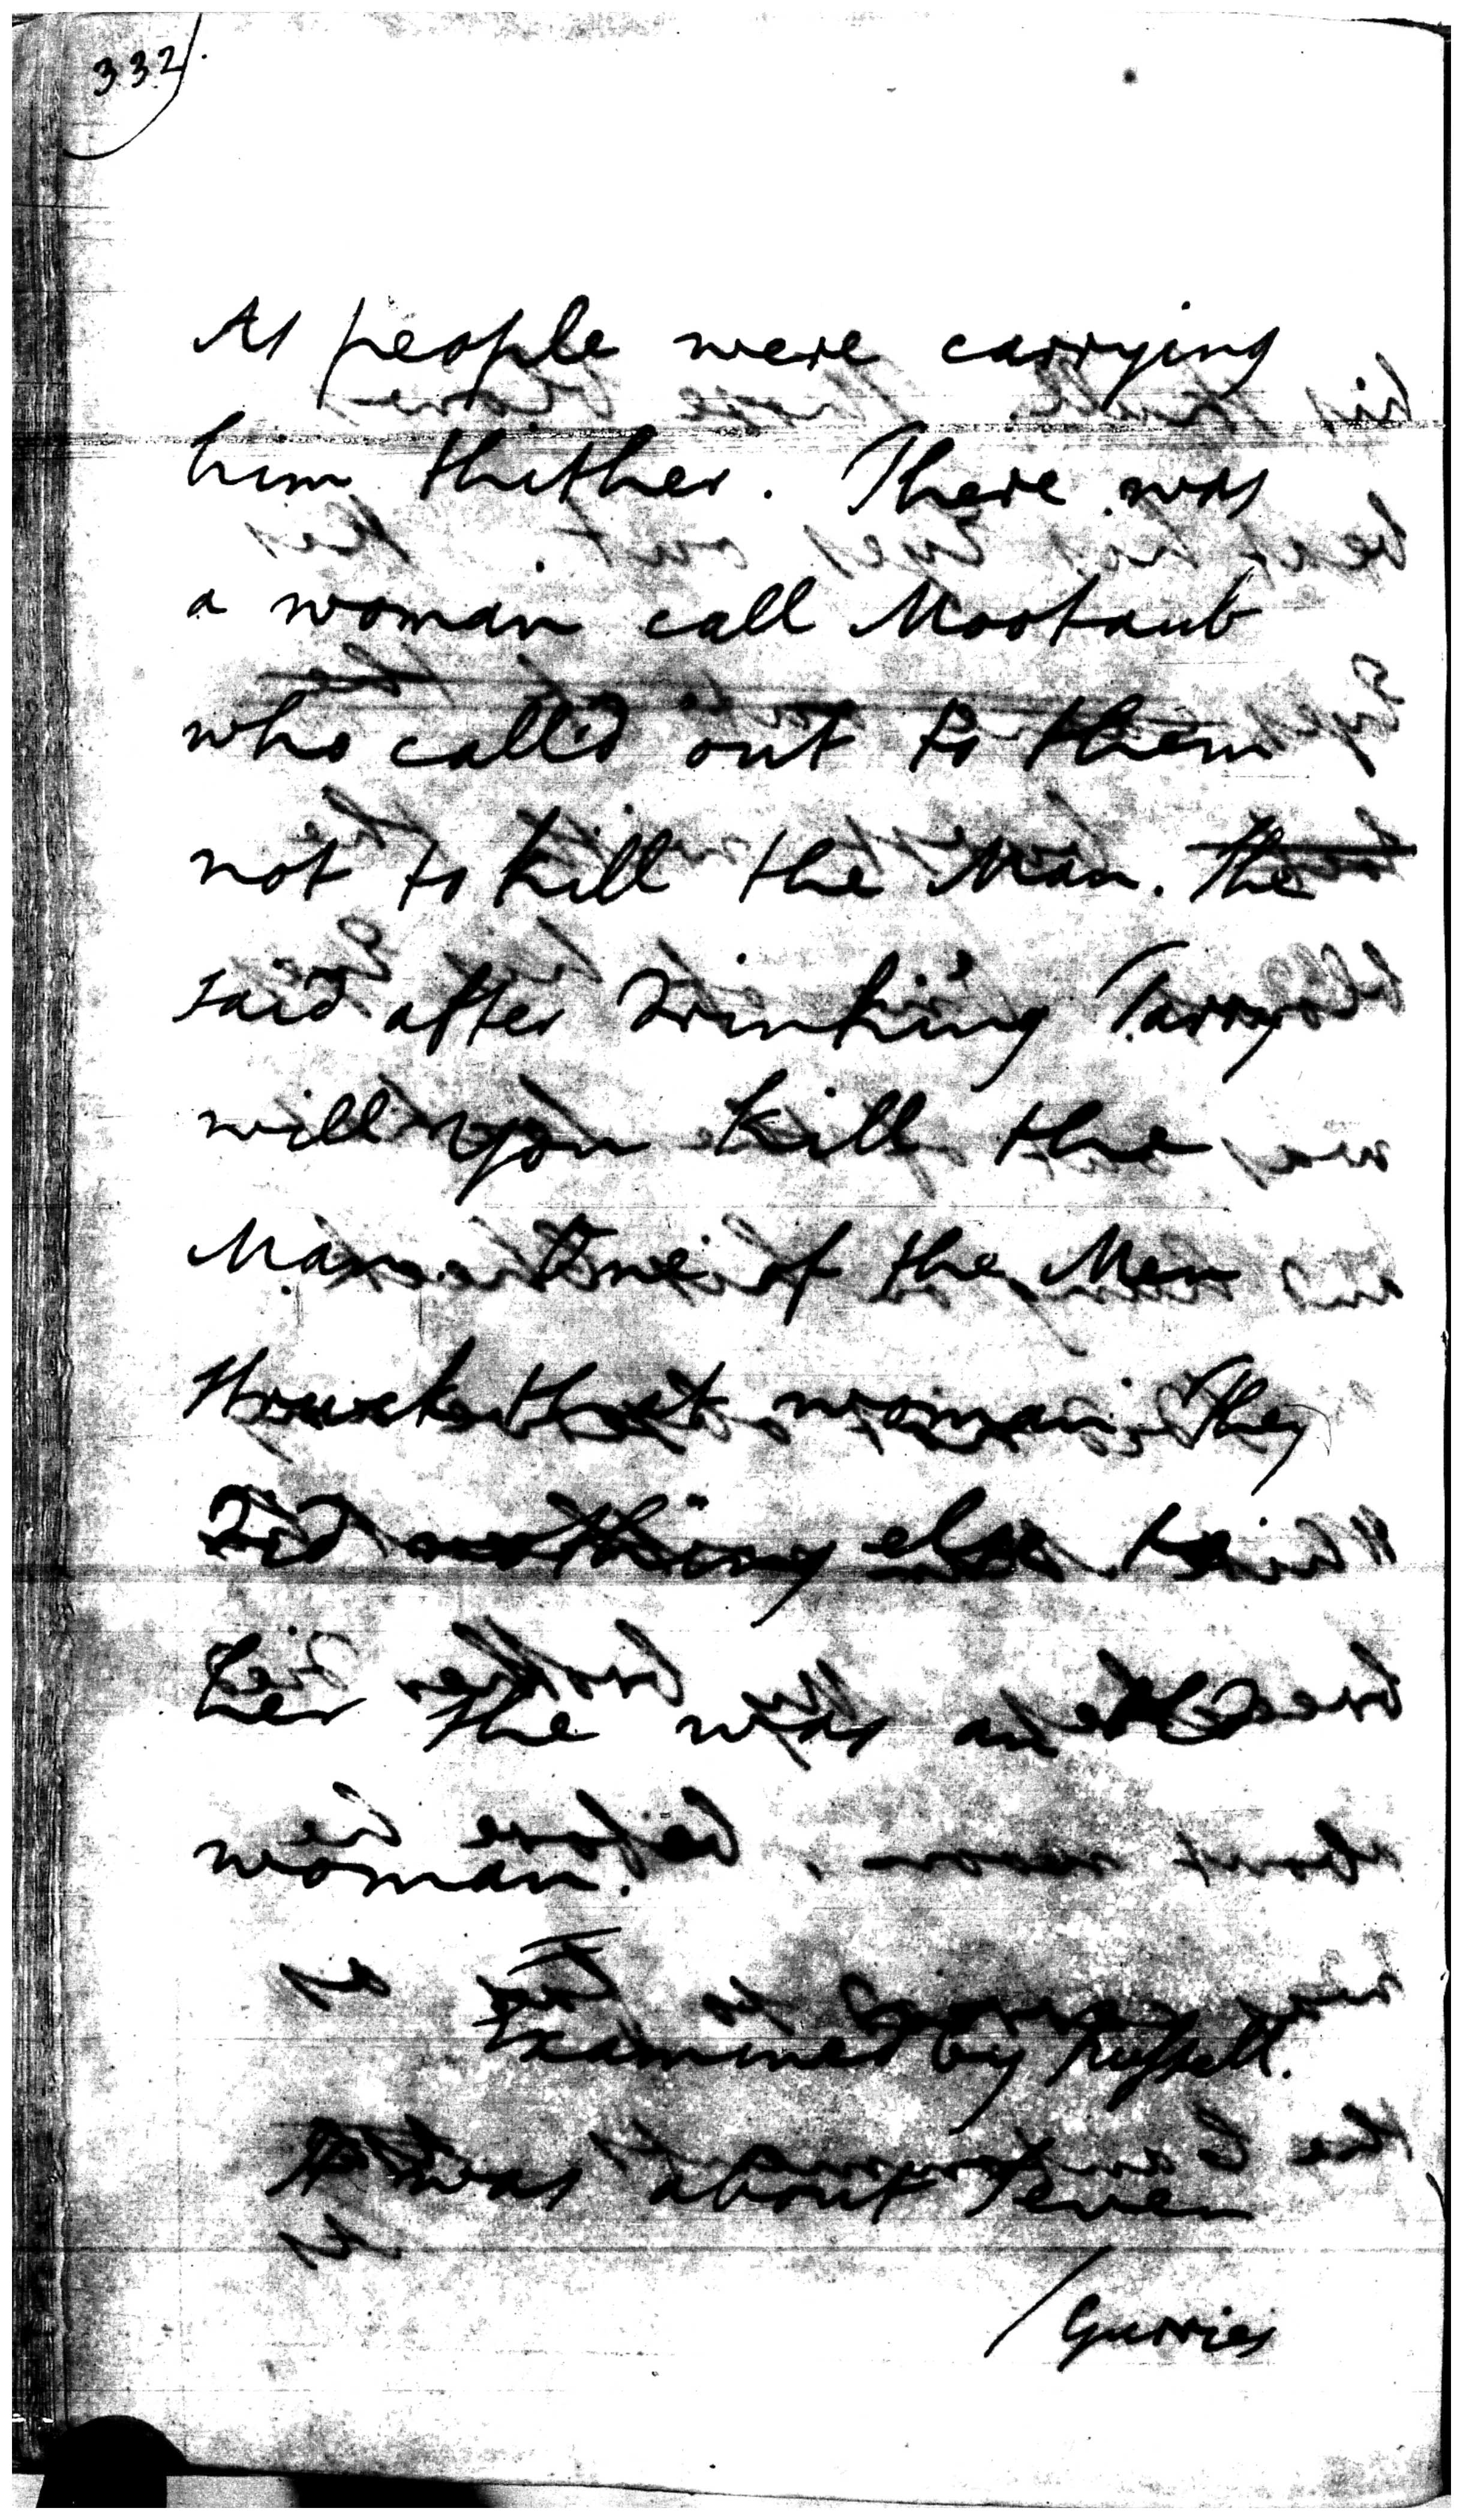 332
As people were carrying
him thither. There was
a woman call Mootaub
who call'd out to them
not to kill the Man. She
said after drinking Tarry
will you kill the
Man. One of the Men
struck that woman. They
did nothing else to
her she was an
woman.
Examined by Russell.
It was about seven
Gurries